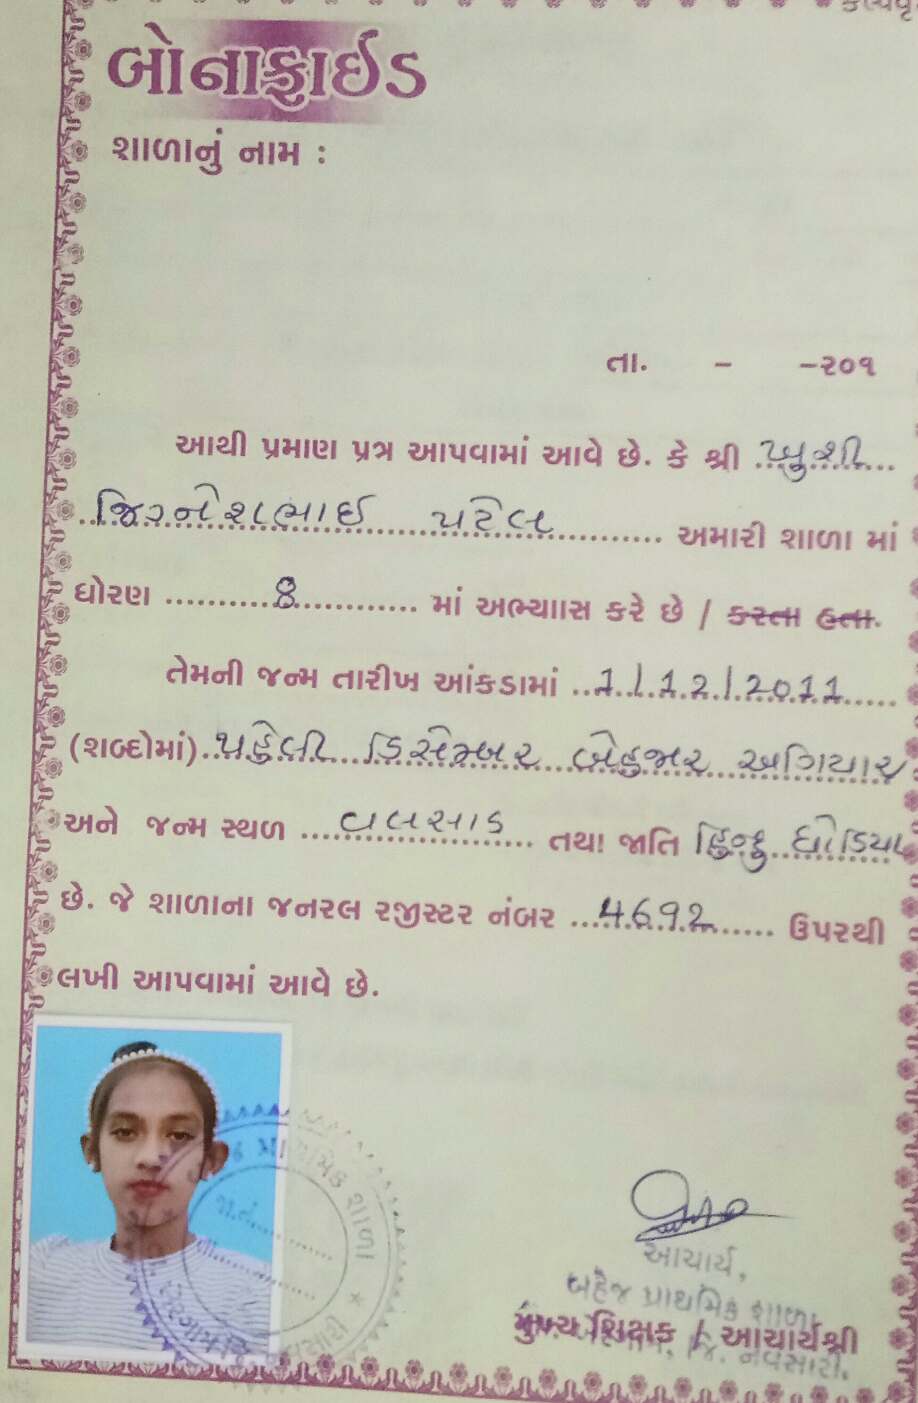 બોનાફાઈડ
શાળાનું નામ :
તા. - -૨૦૧
આથી પ્રમાણ પત્ર આપવામાં આવે છે. કે શ્રી ખુશી
જિગ્નેશભાઈ પટેલ અમારી શાળા માં
ધોરણ 8 માં અભ્યાાસ કરે છે / કરતા હતા.
તેમની જન્મ તારીખ આંકડામાં 1/12/2011
(શબ્દોમાં) પહેલી ડિસેમ્બર બેહજાર અગિયાર
અને જન્મ સ્થળ વલસાડ તથા જાતિ હિન્દુ ધોડિયા
છે. જે શાળાના જનરલ રજીસ્ટર નંબર 4692 ઉપરથી
લખી આપવામાં આવે છે.
પ્રાથમિક શાળા
આચાર્ય,
બહેજ પ્રાથમિક શાળા,
મુખ્ય શિક્ષક / આચાર્યશ્રી
જિ. નવસારી.